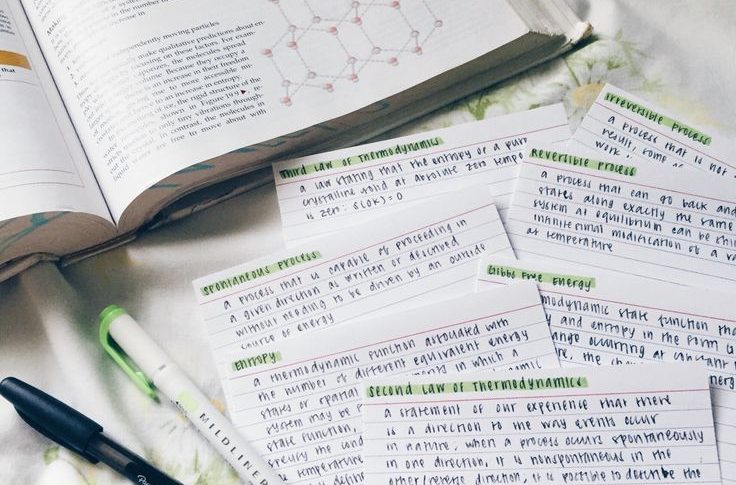 Making
increase in
independently moving particles
make qualitative predictions about en-
focusing on these factors. For exam-
vaporizes, the molecules spread
Because they occupy a
increase in their freedom
rise to more accessible mi-
to an increase in entropy.
ice, the rigid structure of the
shown in Figure 19.9
only tiny vibrations through-
In contrast, the molecules in
liquid water are free to move about with
that
Third Law of Thermodynamics
a law stating that the entropy of a pure
crystalline solid at absolute zero temp
is zero: S(0K)=0
Irreversible Process
a process that is not
result, some
work is
Reversible Process
a process that can go back and
states along exactly the same
system at equilibrium can be
infinitesimal modification of a
as temperature
Spontaneous Process
a process that is capable of proceeding in
a given direction as written or described
without needing to be driven by an outside
source of energy
Gibbs Free Energy
modynamic state function that
y and entropy in the form
ange occurring at constant
Entropy
a thermodynamic function associated with
the number of different equivalent energy
states or spatial
in which a
system may be
state function,
specify the
is temperature
Second Law of Thermodynamics
a statement of our experience that there
is a direction to the way events occur
in nature; when a process occurs spontaneously
in one direction, it is nonspontaneous in the
other/reverse direction; it is possible to describe the
MILDLINER